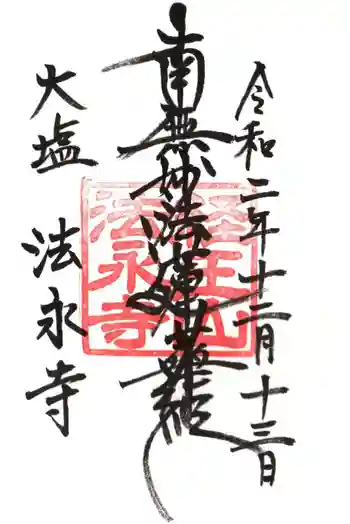 令和二年十二月十三日
南無妙法蓮華経
大塩 法永寺
経王山
法永寺